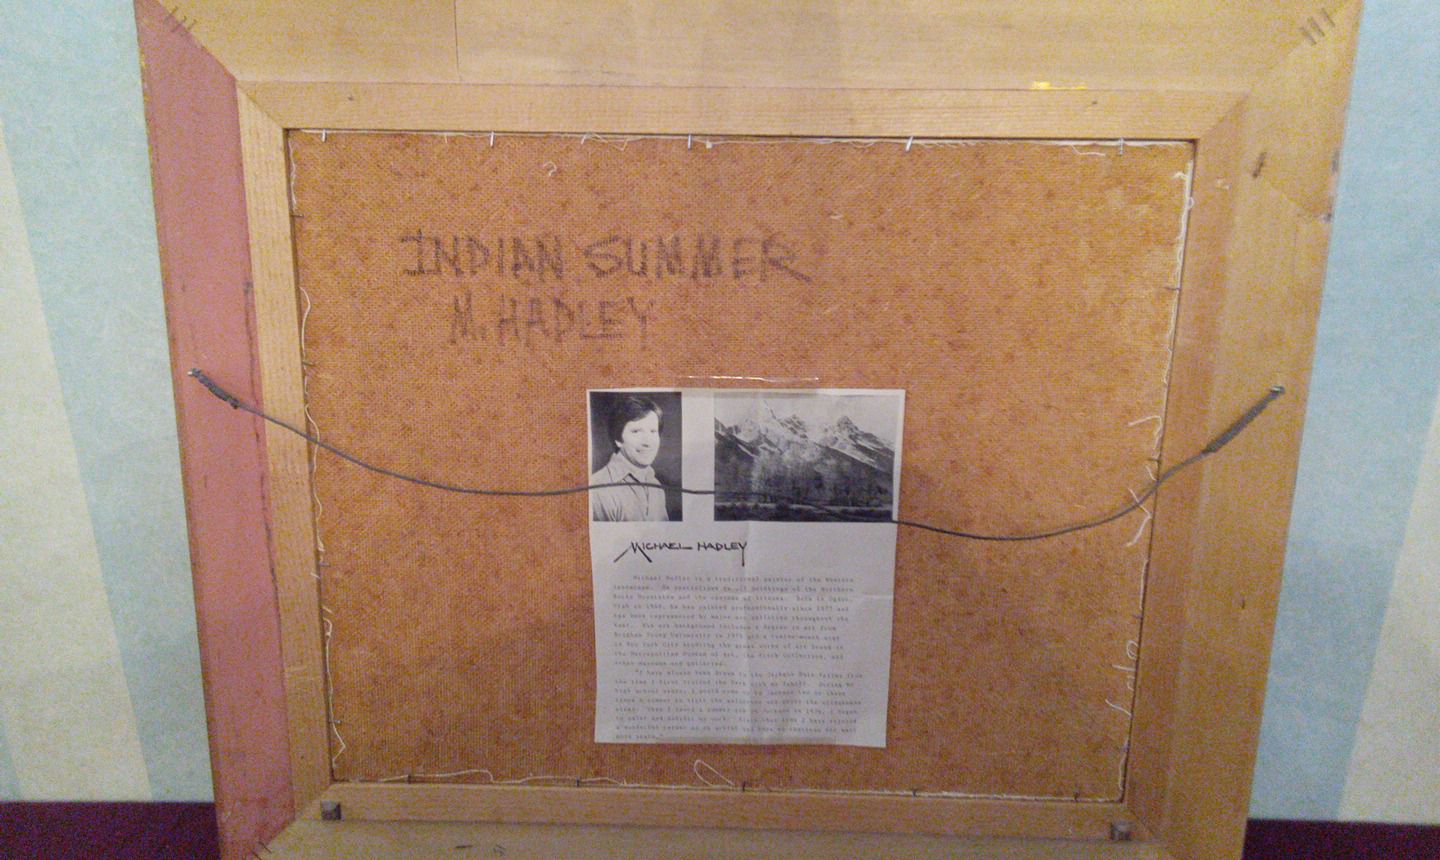 INDIAN SUMMER
M. HADLEY
MICHAEL HADLEY
Michael Hadley is a traditional painter of the Western
landscape. He specializes in oil paintings of the Northern
Rocky Mountains and the canyons of Arizona. Born in Ogden,
Utah in 1948, he has painted professionally since 1977 and
has been represented by major art galleries throughout the
West. His art background includes a degree in art from
Brigham Young University in 1975 and a twelve-month stay
in New York City studying the great works of art found in
the Metropolitan Museum of Art, the Frick Collection, and
other museums and galleries.
"I have always been drawn to the Jackson Hole Valley from
the time I first visited the Tetons with my family. During my
high school years, I would come up to Jackson two or three
times a summer to visit the galleries and
When I found a summer in 1976, I began
to paint and exhibit my work. Since that time I have enjoyed
a wonderful career as an artist and hope to continue for many
more years."